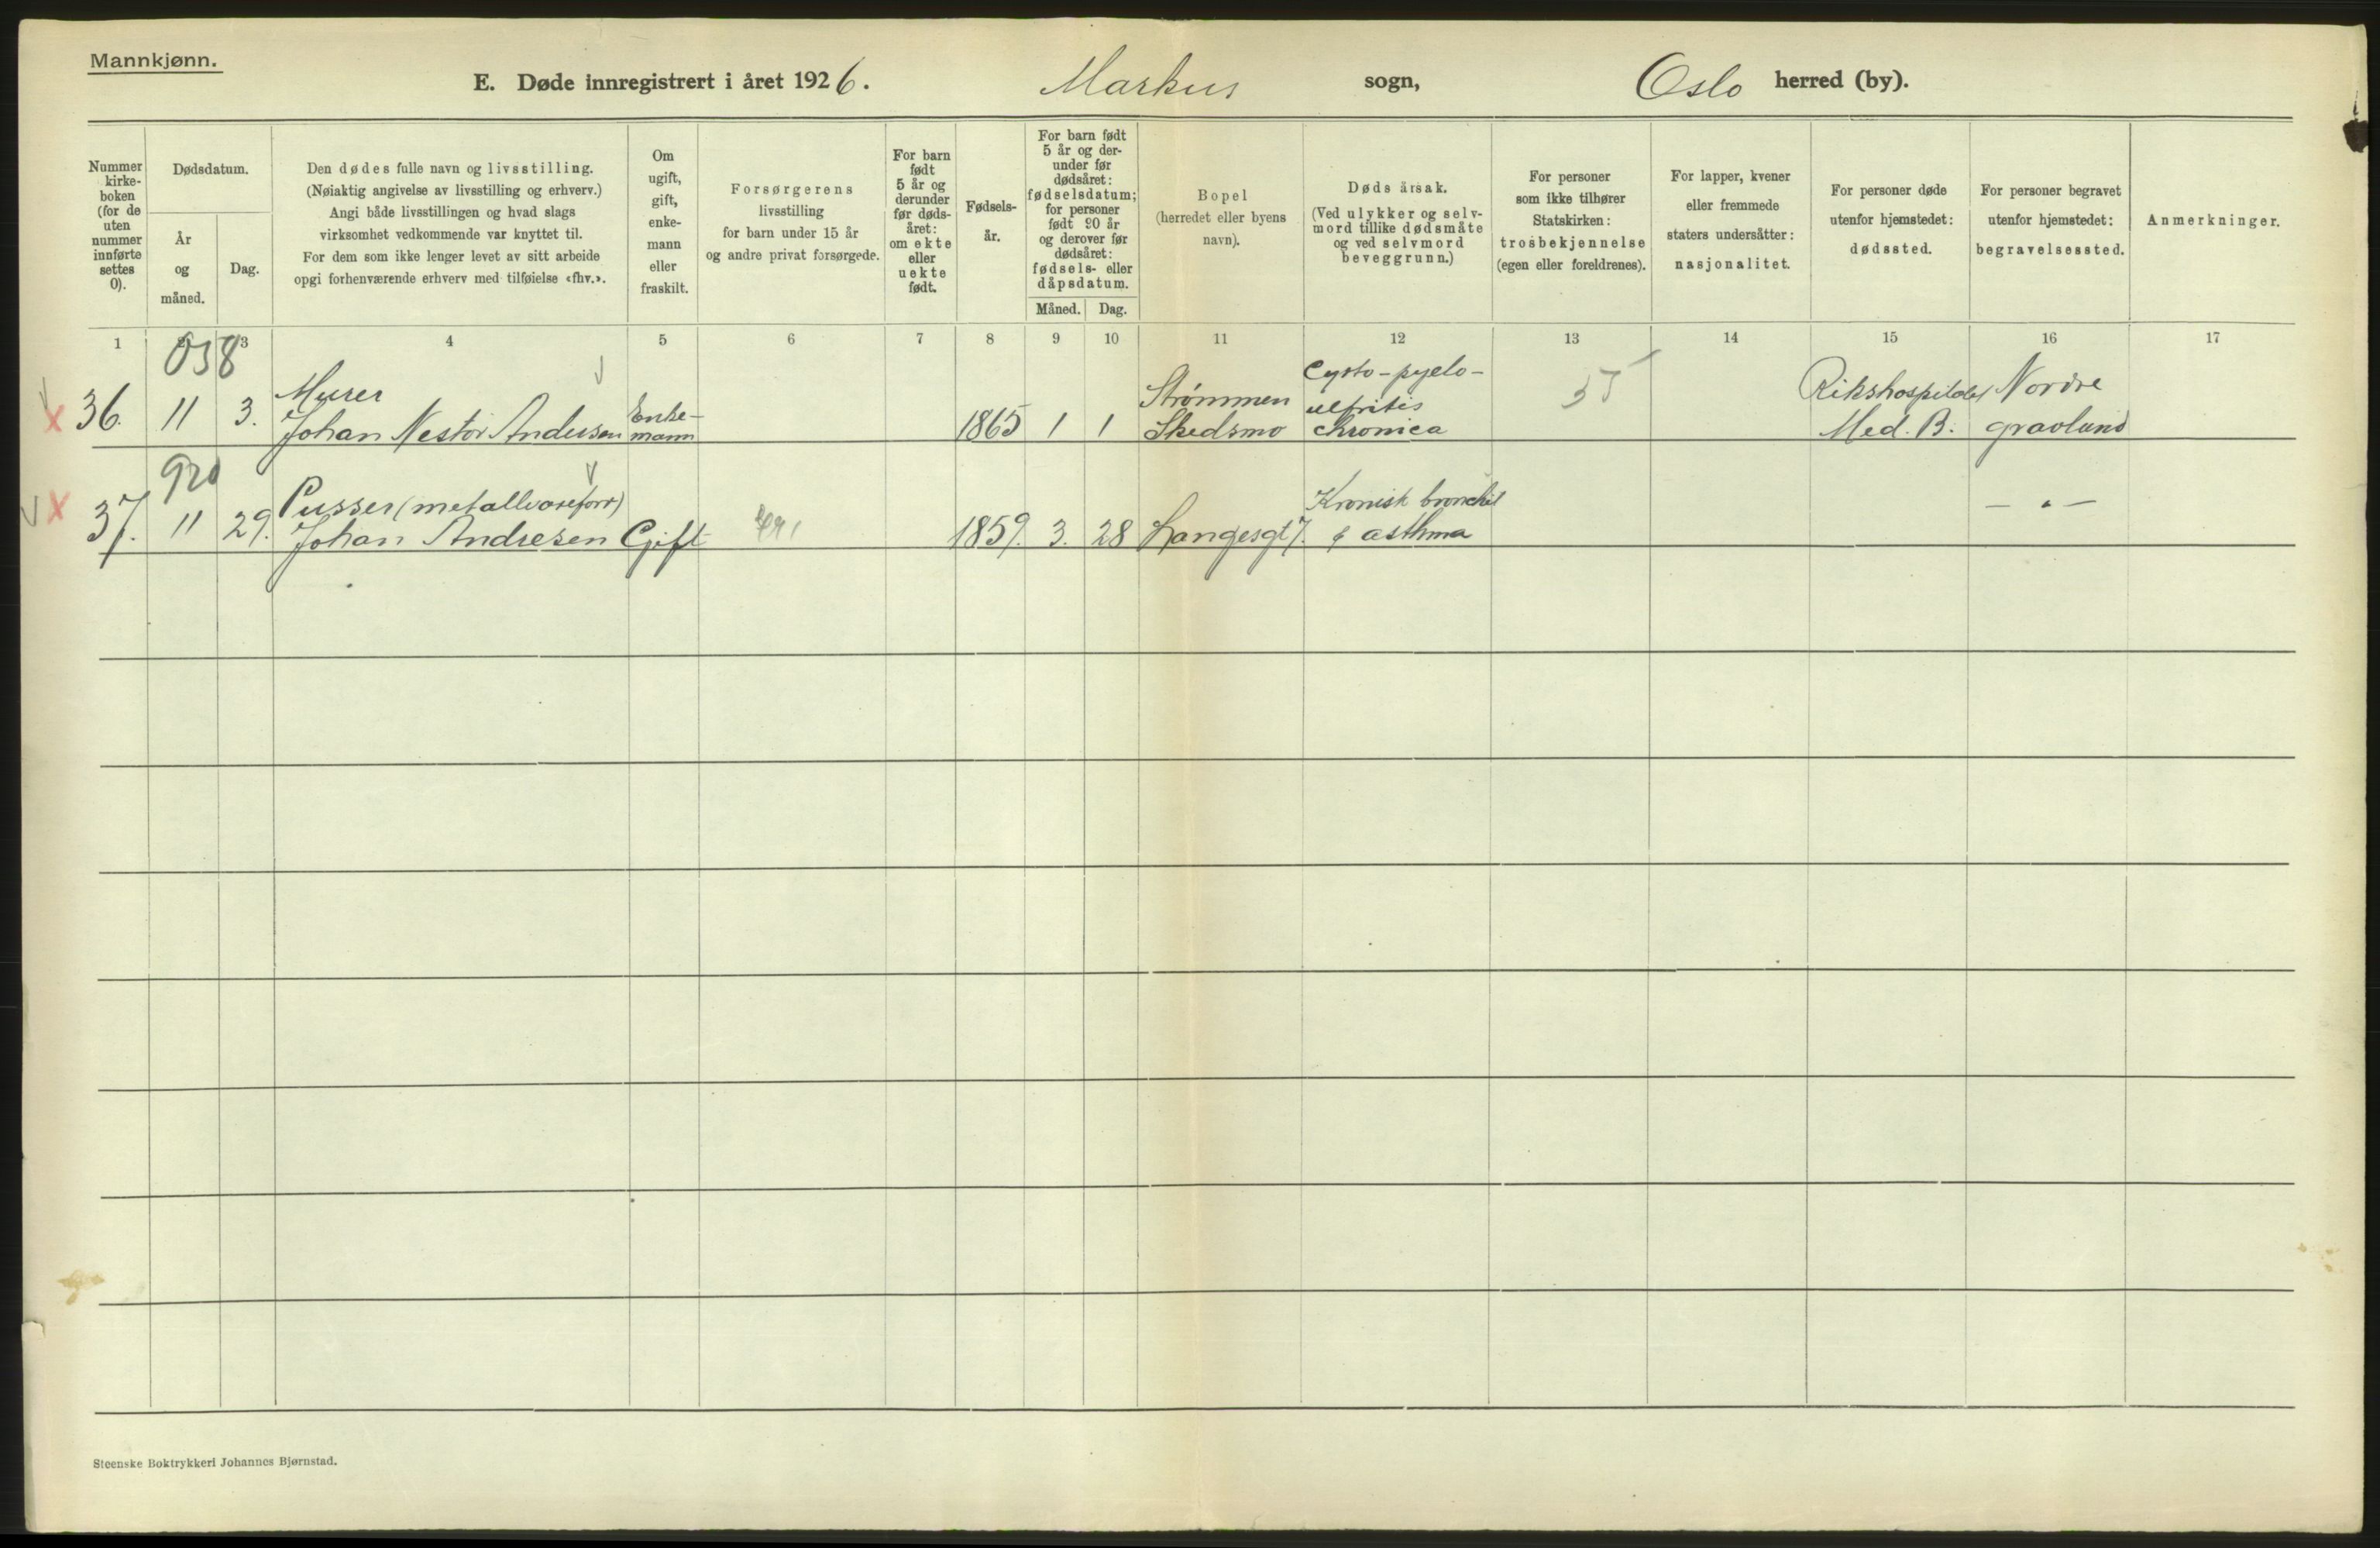 Mannkjønn.
E. Døde innregistrert i året 1926. Markus sogn, Oslo herred (by).
Nummer kirke- boken (for de uten nummer innførte settes 0).
Dødsdatum.
År og måned.
Dag.
Den dødes fulle navn og livsstilling.
(Nøiaktig angivelse av livsstilling og erhverv.)
Angi både livsstillingen og hvad slags
virksomhet vedkommende var knyttet til.
For dem som ikke lenger levet av sitt arbeide
opgi forhenværende erhverv med tilføielse «fhv.».
Om ugift, gift, enke- mann eller fraskilt.
Forsørgerens
livsstilling
for barn under 15 år
og andre privat forsørgede.
For barn født 5 år og derunder før døds- året: om ekte eller uekte født.
Fødsels- år.
For barn født 5 år og der- under før dødsåret: fødselsdatum; for personer født 20 år og derover før dødsåret: fødsels- eller dåpsdatum.
Måned. Dag.
Bopel
(herredet eller byens
navn).
Døds årsak.
(Ved ulykker og selv-
mord tillike dødsmåte
og ved selvmord
beveggrunn.)
For personer
som ikke tilhører
Statskirken:
trosbekjennelse
(egen eller foreldrenes).
For lapper, kvener
eller fremmede
staters undersåtter:
nasjonalitet.
For personer døde
utenfor hjemstedet:
dødssted.
For personer begravet
utenfor hjemstedet:
begravelsessted.
Anmerkninger.
1 2 3 4 5 6 7 8 9 10 11 12 13 14 15 16 17
058
Murer Strømmen Cysto-pyelo- Rikshospitalet Nordre
36. 11 3. Johan Nestor Andersen Enke- mann 1865 1 1 Skedsmo chronica Med. B. gravlund
920
Pusser (metallvareforr) Kronisk bronchit — " —
37. 11 29. Johan Andresen Gift 1859. 3. 28 Langesgt 7. & asthma
Steenske Boktrykkeri Johannes Bjørnstad.